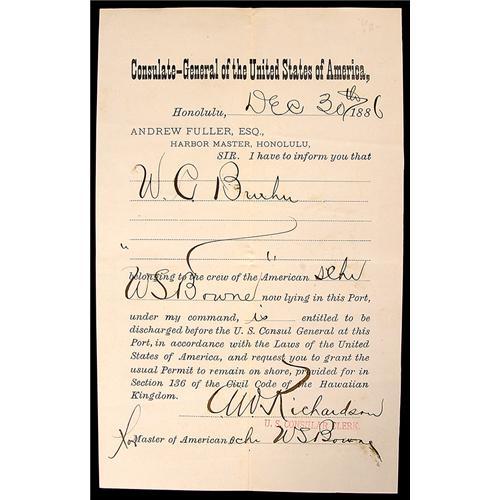 Consulate-General of the United States of America,
Honolulu, Dec 30th 1886
ANDREW FULLER, ESQ.,
HARBOR MASTER, HONOLULU,
SIR. I have to inform you that
W. C.
" "
belonging to the crew of the American schr
WSBowne now lying in this Port,
under my command, is entitled to be
discharged before the U. S. Consul General at this
Port, in accordance with the Laws of the United
States of America, and request you to grant the
usual Permit to remain on shore, provided for in
Section 136 of the Civil Code of the Hawaiian
Kingdom.
AW Richardson
U. S. CONSULAR CLERK.
for Master of American schr WSBowne